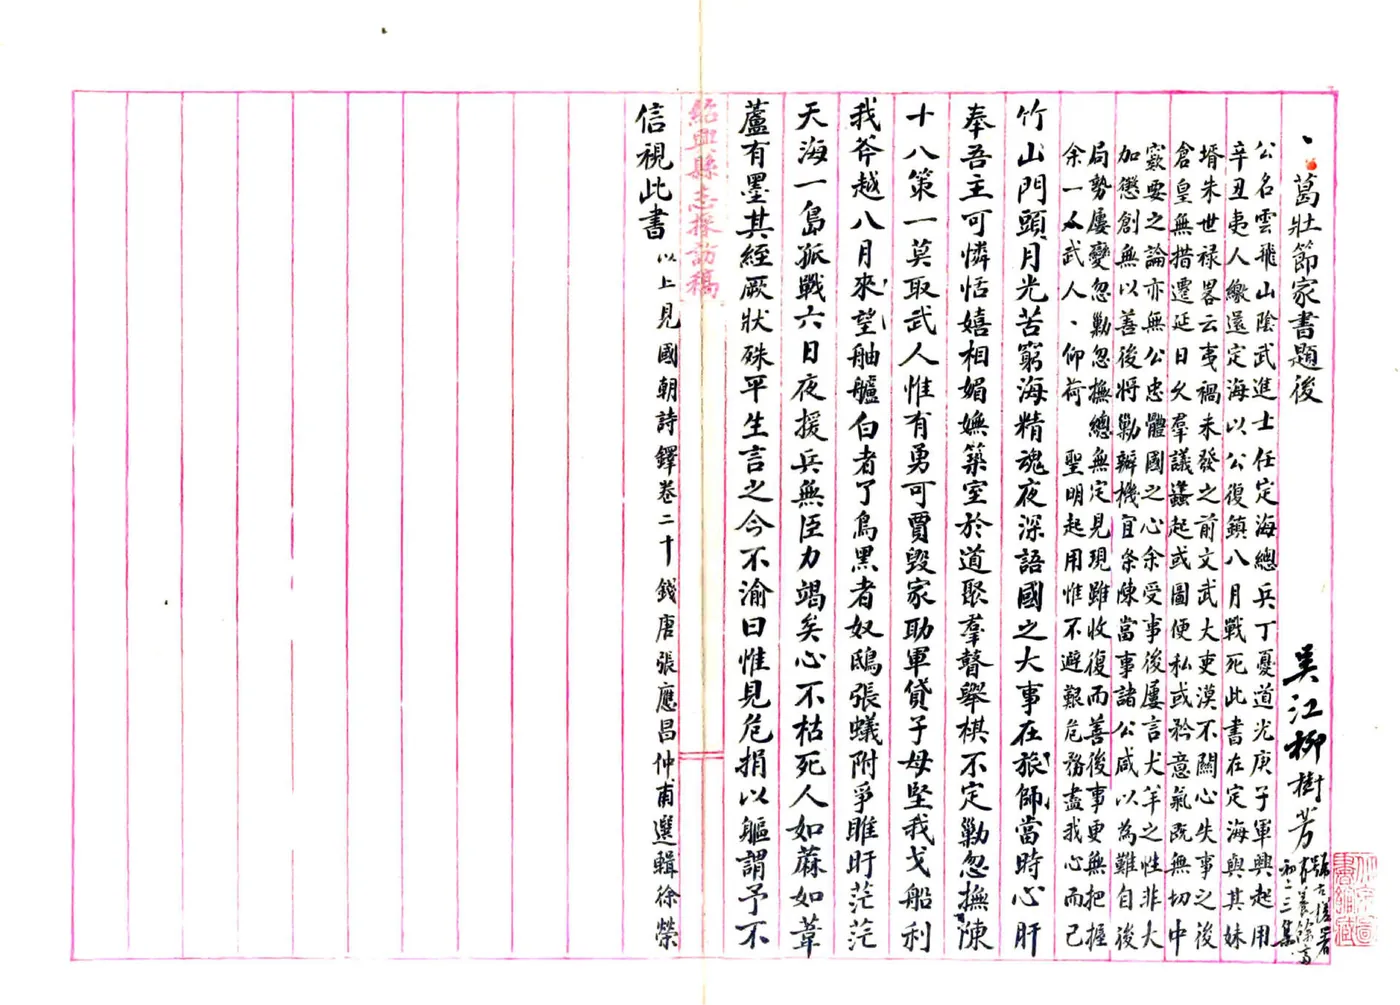 葛壯節家書題後
吳江柳樹芳
公名雲飛山陰武進士任定海總兵丁憂道光庚子軍興起用
辛丑夷人繳還定海以公復鎮八月戰死此書在定海與其妹
壻朱世祿畧云夷禍未發之前文武大吏漠不關心失事之後
倉皇無措遷延日久羣議蠭起或圖便私或矜意氣旣無切中
窽要之論亦無公忠體國之心余受事後屢言犬羊之性非大
加懲創無以善後將勦辦機宜条陳當事諸公咸以為難自後
局勢屢變忽勦忽撫總無定見現雖收復而善後事更無把握
余一介武人、仰荷　聖明起用惟不避艱危務盡我心而已
竹山門頭月光苦窮海精魂夜深語國之大事在旅師當時心肝
奉吾主可憐恬嬉相媚嫵築室於道聚羣瞽舉棋不定勦忽撫陳
十八策一莫取武人惟有勇可賈毀家助軍貸子母堅我戈船利
我斧越八月來望舳艫白者了鳥黑者奴鴟張蟻附爭睢盱茫茫
天海一島孤戰六日夜援兵無臣力竭矣心不枯死人如蔴如葦
蘆有墨其絰厥狀殊平生言之今不渝曰惟見危捐以軀謂予不
紹興縣志採訪稿
信視此書　以上見國朝詩鐸卷二十錢唐張應昌仲甫選輯徐榮